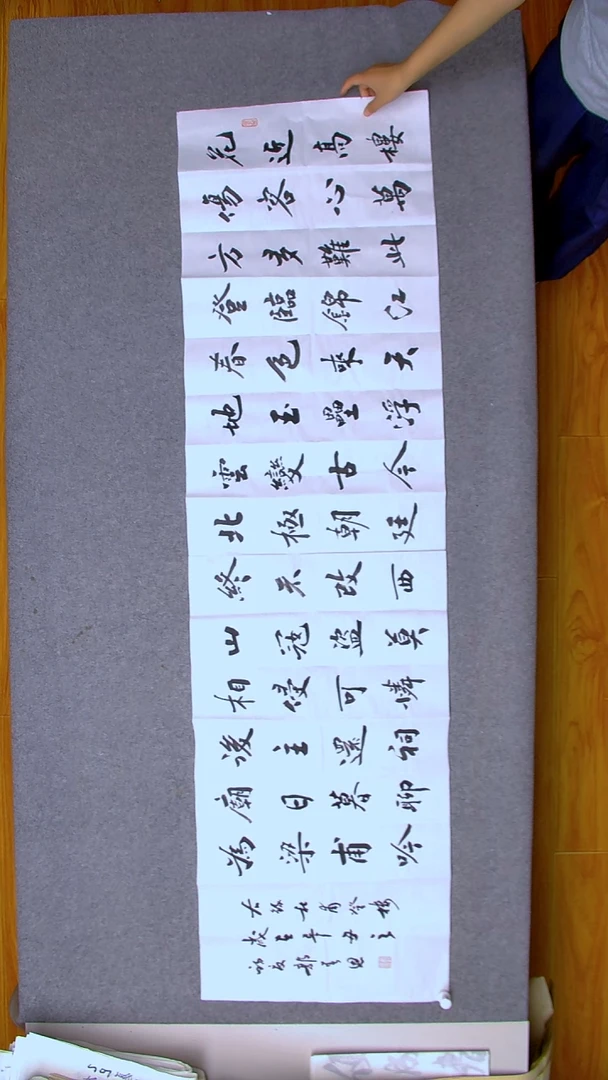 花近高樓
傷客心萬
方多難此
登臨錦江
春色來天
地玉壘浮
雲變古今
北極朝廷
終不改西
山寇盜莫
相侵可憐
後主還祠
廟日暮聊
為梁甫吟
杜甫登樓
歲在辛丑